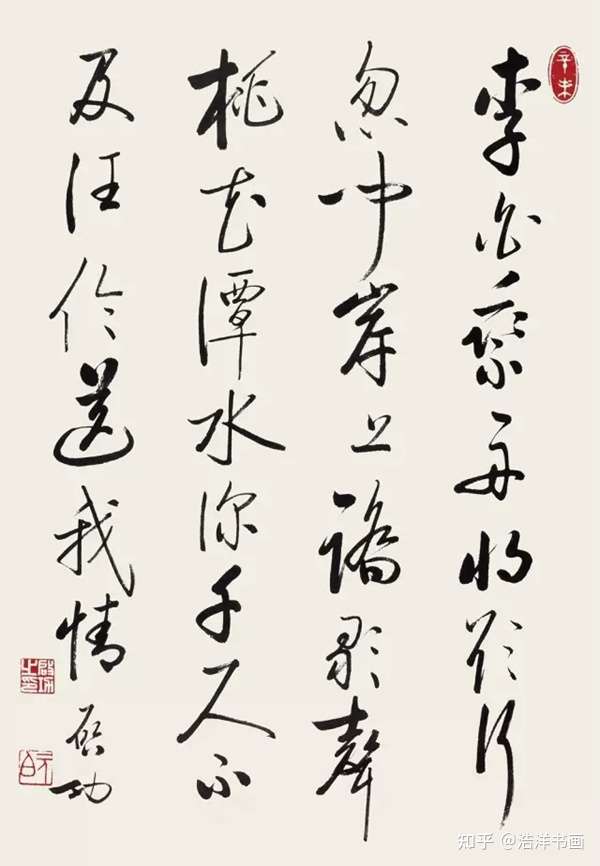 辛未
李白乘舟将欲行
忽聞岸上踏歌聲
桃花潭水深千尺不
及汪倫送我情
启功
啟功之印
元白
知乎 @浩洋书画